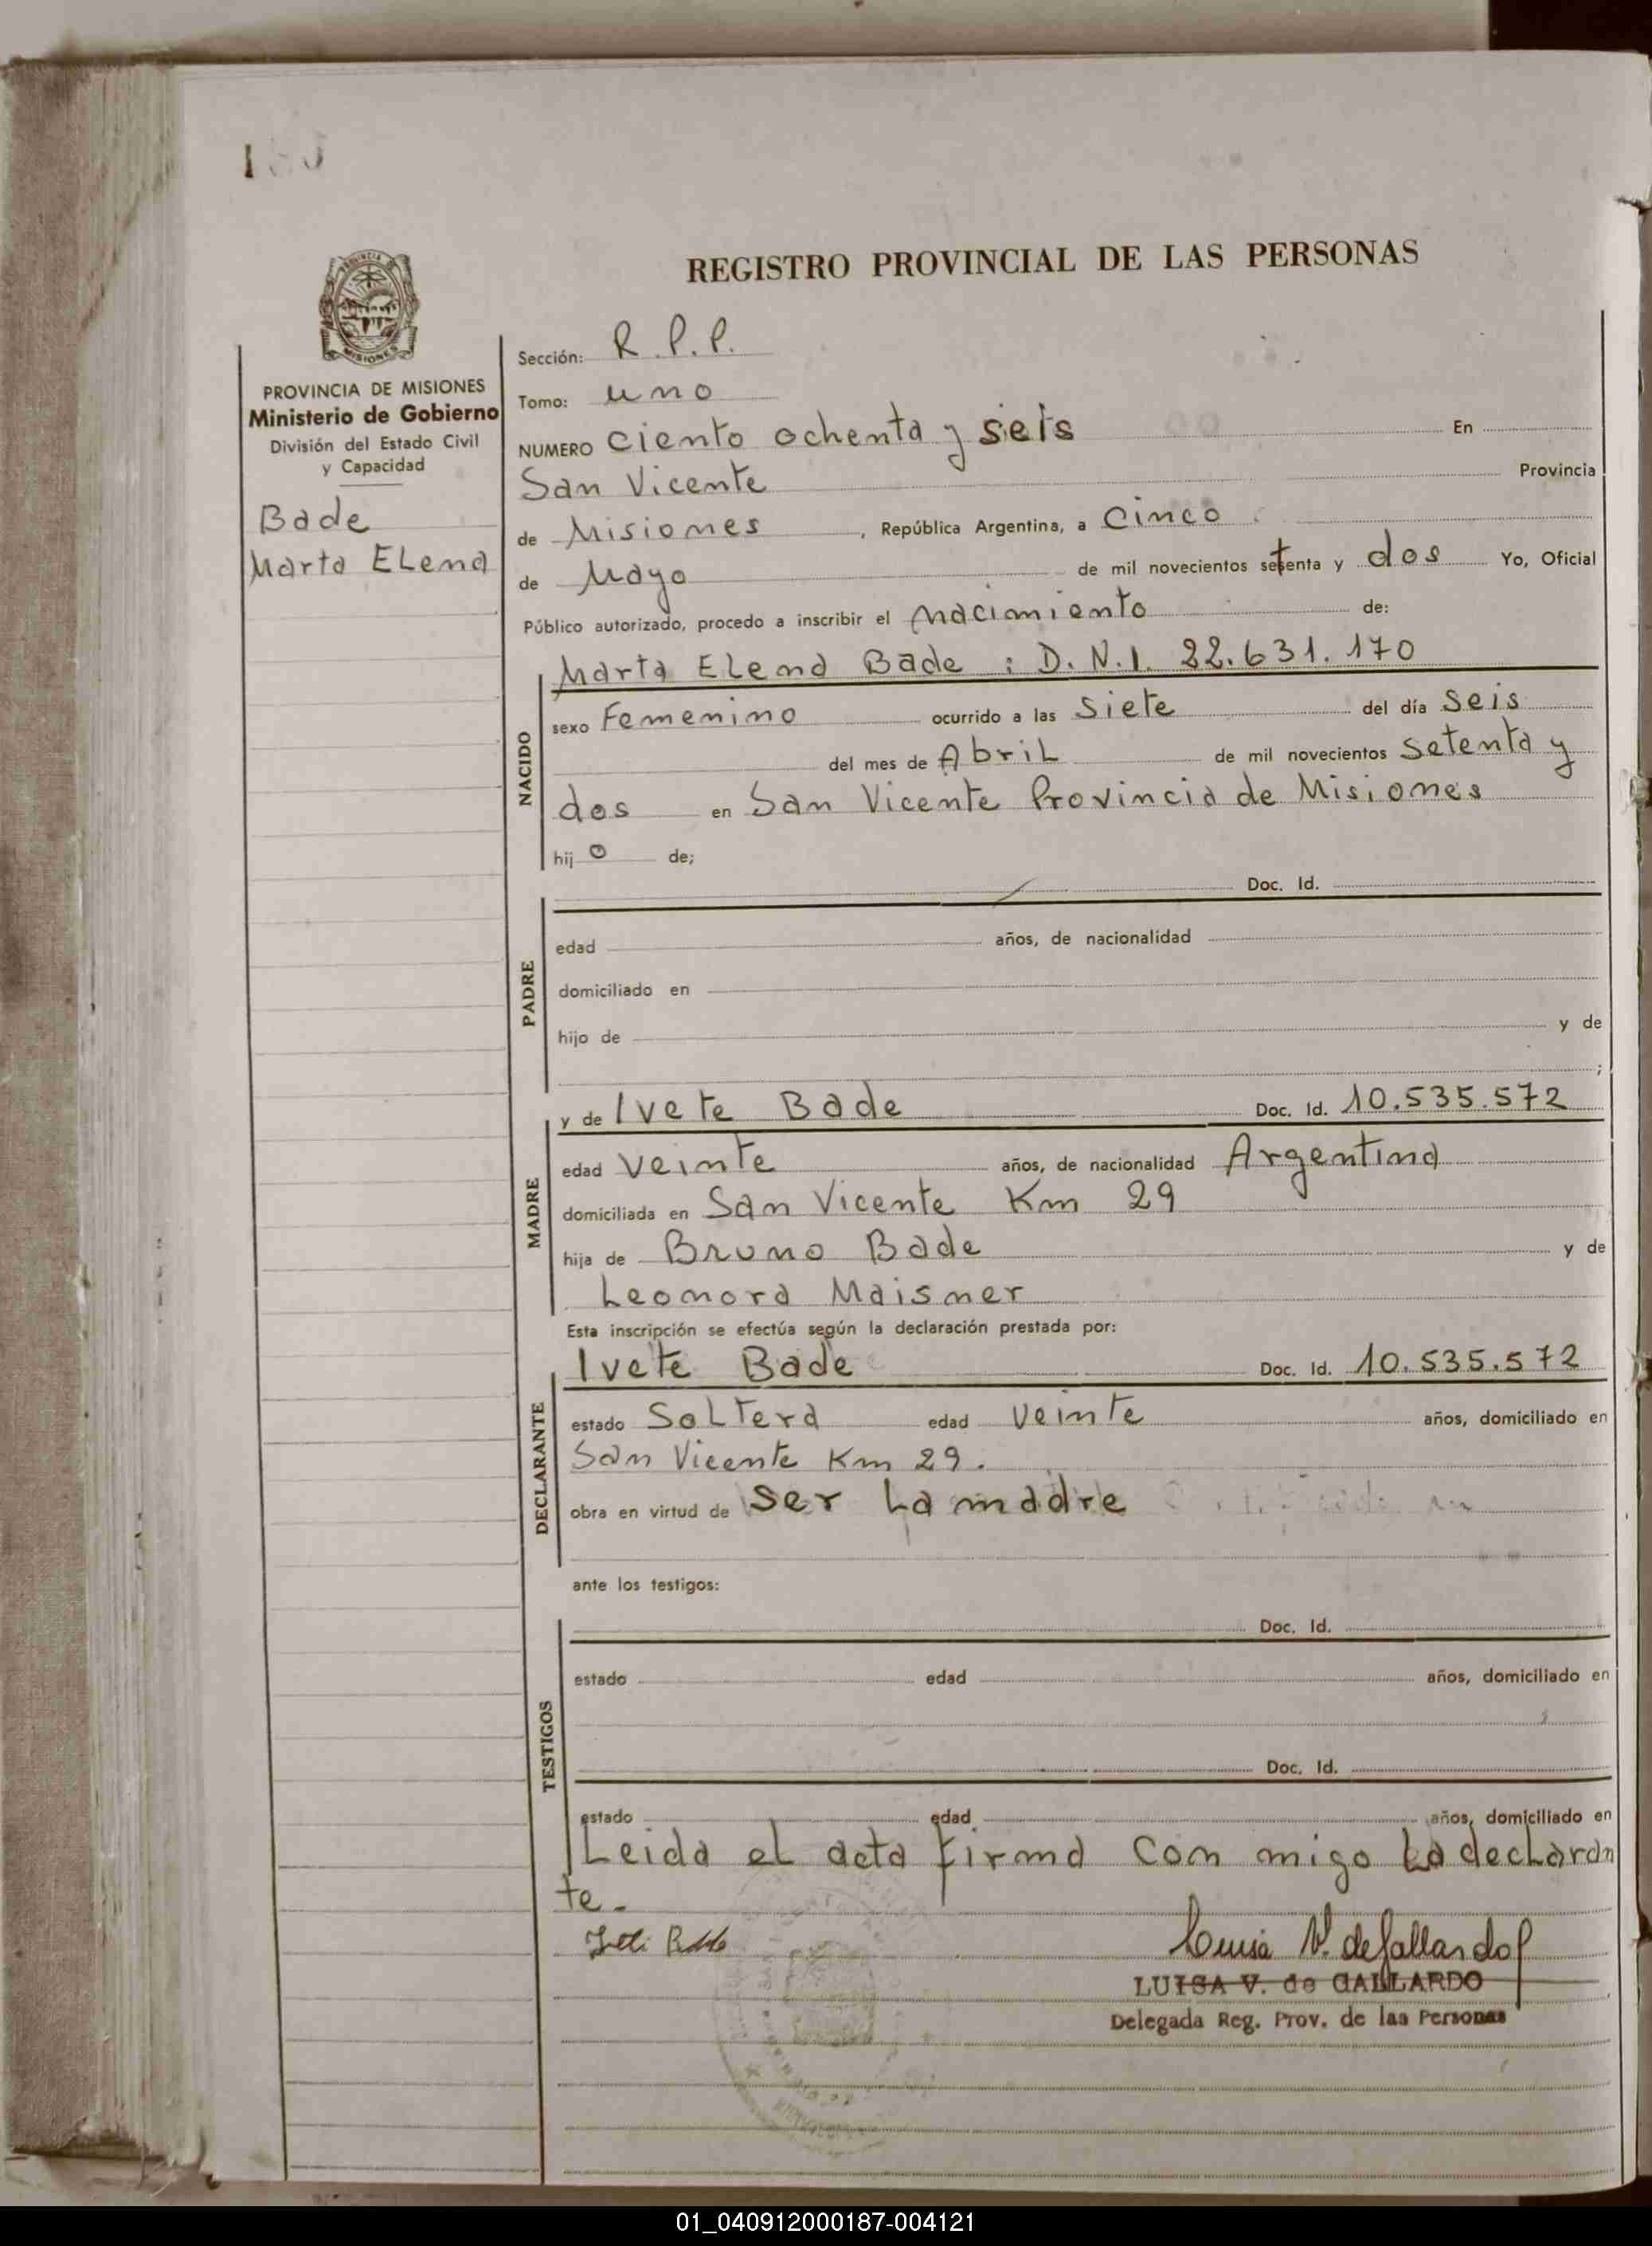 REGISTRO PROVINCIAL DE LAS PERSONAS
MISIONES
PROVINCIA DE MISIONES
Ministerio de Gobierno
División del Estado Civil
y Capacidad
Bade
Marta Elena
Sección: R.P.P.
Tomo: uno
NUMERO ciento ochenta y seis En
San Vicente Provincia
de Misiones, República Argentina, a cinco
de Mayo de mil novecientos setenta y dos Yo, Oficial
Público autorizado, procedo a inscribir el nacimiento de:
NACIDO
Marta Elena Bade : D.N.I. 22.631.170
sexo Femenino ocurrido a las siete del día seis
del mes de Abril de mil novecientos setenta y
dos en San Vicente Provincia de Misiones
hij o de;
PADRE
Doc. Id.
edad años, de nacionalidad
domiciliado en
hijo de y de
;
MADRE
y de Ivete Bade Doc. Id. 10.535.572
edad veinte años, de nacionalidad Argentina
domiciliada en San Vicente Km 29
hija de Bruno Bade y de
Leonora Maisner
Esta inscripción se efectúa según la declaración prestada por:
DECLARANTE
Ivete Bade Doc. Id. 10.535.572
estado Soltera edad veinte años, domiciliado en
San Vicente Km 29.
obra en virtud de ser la madre
ante los testigos:
TESTIGOS
Doc. Id.
estado edad años, domiciliado en
Doc. Id.
estado edad años, domiciliado en
Leida el acta firma con migo la declaran
te.
Luisa V. de Gallardo
LUISA V. de GALLARDO
Delegada Reg. Prov. de las Personas
01_040912000187-004121